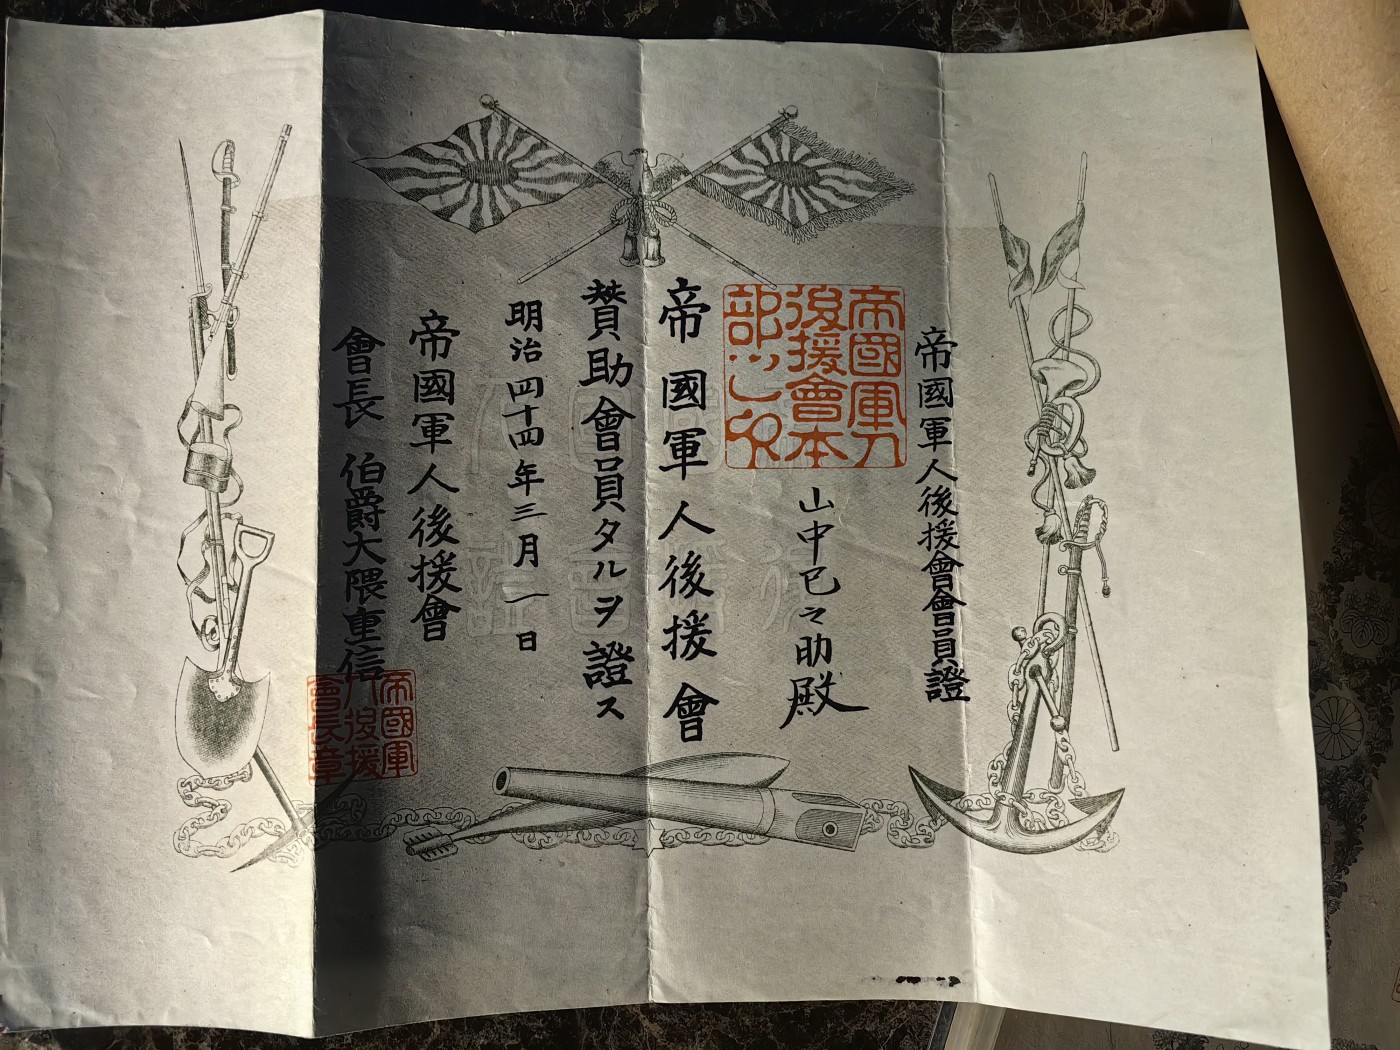 帝國軍人後援會會員證
山中巳之助殿
帝國軍人後援會本部之印
帝國軍人後援會
賛助會員タルヲ證ス
明治四十四年三月一日
帝國軍人後援會
會長 伯爵大隈重信
帝國軍人後援會長章